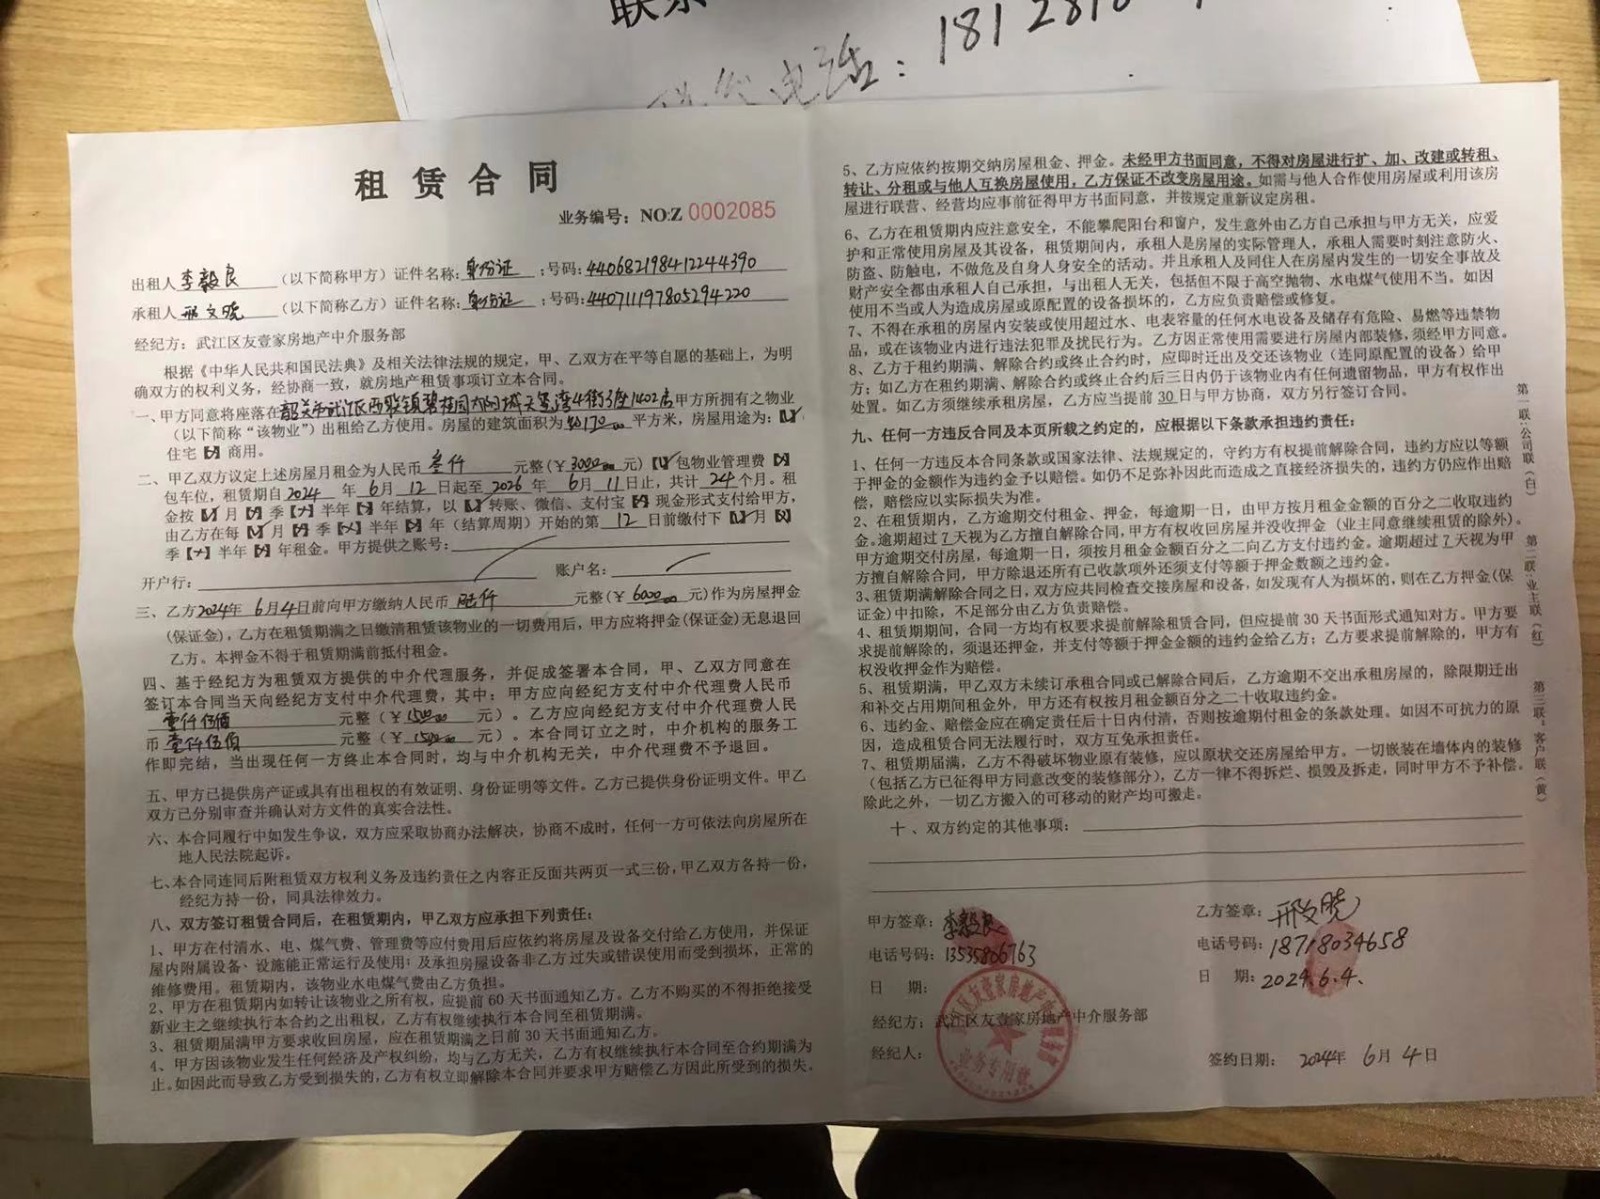 联系
电话：181281
租赁合同
业务编号：NO:Z 0002085
出租人李毅良（以下简称甲方）证件名称：身份证；号码：440682198412244390
承租人邢文晓（以下简称乙方）证件名称：身份证；号码：440711197805294220
经纪方：武江区友壹家房地产中介服务部
根据《中华人民共和国民法典》及相关法律法规的规定，甲、乙双方在平等自愿的基础上，为明
确双方的权利义务，经协商一致，就房地产租赁事项订立本合同。
一、甲方同意将座落在韶关市武江区西联镇碧桂园太阳城天玺湾4街3座1402房甲方所拥有之物业
（以下简称“该物业”）出租给乙方使用。房屋的建筑面积为约170平方米，房屋用途为：【√】
住宅【×】商用。
二、甲乙双方议定上述房屋月租金为人民币叁仟元整（￥3000.00元）【√】包物业管理费【×】
包车位，租赁期自2024年6月12日起至2026年6月11日止，共计24个月。租
金按【√】月【×】季【×】半年【×】年结算，以【√】转账、微信、支付宝【×】现金形式支付给甲方，
由乙方在每【√】月【×】季【×】半年【×】年（结算周期）开始的第12日前缴付下【√】月【×】
季【×】半年【×】年租金。甲方提供之账号：
开户行： 账户名：
三、乙方2024年6月4日前向甲方缴纳人民币陆仟元整（￥6000.00元）作为房屋押金
（保证金），乙方在租赁期满之日缴清租赁该物业的一切费用后，甲方应将押金（保证金）无息退回
乙方。本押金不得于租赁期满前抵付租金。
四、基于经纪方为租赁双方提供的中介代理服务，并促成签署本合同，甲、乙双方同意在
签订本合同当天向经纪方支付中介代理费，其中：甲方应向经纪方支付中介代理费人民币
壹仟伍佰元整（￥1500.00元）。乙方应向经纪方支付中介代理费人民
币壹仟伍佰元整（￥1500.00元）。本合同订立之时，中介机构的服务工
作即完结，当出现任何一方终止本合同时，均与中介机构无关，中介代理费不予退回。
五、甲方已提供房产证或具有出租权的有效证明、身份证明等文件。乙方已提供身份证明文件。甲乙
双方已分别审查并确认对方文件的真实合法性。
六、本合同履行中如发生争议，双方应采取协商办法解决，协商不成时，任何一方可依法向房屋所在
地人民法院起诉。
七、本合同连同后附租赁双方权利义务及违约责任之内容正反面共两页一式三份，甲乙双方各持一份，
经纪方持一份，同具法律效力。
八、双方签订租赁合同后，在租赁期内，甲乙双方应承担下列责任：
1、甲方在付清水、电、煤气费、管理费等应付费用后应依约将房屋及设备交付给乙方使用，并保证
屋内附属设备、设施能正常运行及使用；及承担房屋设备非乙方过失或错误使用而受到损坏，正常的
维修费用。租赁期内，该物业水电煤气费由乙方负担。
2、甲方在租赁期内如转让该物业之所有权，应提前60天书面通知乙方。乙方不购买的不得拒绝接受
新业主之继续执行本合约之出租权，乙方有权继续执行本合同至租赁期满。
3、租赁期届满甲方要求收回房屋，应在租赁期满之日前30天书面通知乙方。
4、甲方因该物业发生任何经济及产权纠纷，均与乙方无关，乙方有权继续执行本合同至合约期满为
止。如因此而导致乙方受到损失的，乙方有权立即解除本合同并要求甲方赔偿乙方因此所受到的损失。
5、乙方应依约按期交纳房屋租金、押金。未经甲方书面同意，不得对房屋进行扩、加、改建或转租、
转让、分租或与他人互换房屋使用，乙方保证不改变房屋用途。如需与他人合作使用房屋或利用该房
屋进行联营、经营均应事前征得甲方书面同意，并按规定重新议定房租。
6、乙方在租赁期内应注意安全，不能攀爬阳台和窗户，发生意外由乙方自己承担与甲方无关，应爱
护和正常使用房屋及其设备，租赁期间内，承租人是房屋的实际管理人，承租人需要时刻注意防火、
防盗、防触电，不做危及自身人身安全的活动。并且承租人及同住人在房屋内发生的一切安全事故及
财产安全都由承租人自己承担，与出租人无关，包括但不限于高空抛物、水电煤气使用不当。如因
使用不当或人为造成房屋或原配置的设备损坏的，乙方应负责赔偿或修复。
7、不得在承租的房屋内安装或使用超过水、电表容量的任何水电设备及储存有危险、易燃等违禁物
品，或在该物业内进行违法犯罪及扰民行为。乙方因正常使用需要进行房屋内部装修，须经甲方同意。
8、乙方于租约期满、解除合约或终止合约时，应即时迁出及交还该物业（连同原配置的设备）给甲
方；如乙方在租约期满、解除合约或终止合约后三日内仍于该物业内有任何遗留物品，甲方有权作出
处置。如乙方须继续承租房屋，乙方应当提前30日与甲方协商，双方另行签订合同。
九、任何一方违反合同及本页所载之约定的，应根据以下条款承担违约责任：
1、任何一方违反本合同条款或国家法律、法规规定的，守约方有权提前解除合同，违约方应以等额
于押金的金额作为违约金予以赔偿。如仍不足弥补因此而造成之直接经济损失的，违约方仍应作出赔
偿，赔偿应以实际损失为准。
2、在租赁期内，乙方逾期交付租金、押金，每逾期一日，由甲方按月租金金额的百分之二收取违约
金。逾期超过7天视为乙方擅自解除合同，甲方有权收回房屋并没收押金（业主同意继续租赁的除外）。
甲方逾期交付房屋，每逾期一日，须按月租金金额百分之二向乙方支付违约金。逾期超过7天视为甲
方擅自解除合同，甲方除退还所有已收款项外还须支付等额于押金数额之违约金。
3、租赁期满解除合同之日，双方应共同检查交接房屋和设备，如发现有人为损坏的，则在乙方押金（保
证金）中扣除，不足部分由乙方负责赔偿。
4、租赁期期间，合同一方均有权要求提前解除租赁合同，但应提前30天书面形式通知对方。甲方要
求提前解除的，须退还押金，并支付等额于押金金额的违约金给乙方；乙方要求提前解除的，甲方有
权没收押金作为赔偿。
5、租赁期满，甲乙双方未续订承租合同或已解除合同后，乙方逾期不交出承租房屋的，除限期迁出
和补交占用期间租金外，甲方还有权按月租金额百分之二十收取违约金。
6、违约金、赔偿金应在确定责任后十日内付清，否则按逾期付租金的条款处理。如因不可抗力的原
因，造成租赁合同无法履行时，双方互免承担责任。
7、租赁期届满，乙方不得破坏物业原有装修，应以原状交还房屋给甲方。一切嵌装在墙体内的装修
（包括乙方已征得甲方同意改变的装修部分），乙方一律不得拆烂、损毁及拆走，同时甲方不予补偿。
除此之外，一切乙方搬入的可移动的财产均可搬走。
十、双方约定的其他事项：
甲方签章：李毅良 乙方签章：邢文晓
电话号码：13535866763 电话号码：18718034658
日 期： 日 期：2024.6.4.
经纪方：武江区友壹家房地产中介服务部
经纪人： 签约日期：2024年6月4日
武江区友壹家房地产中介服务部
业务专用章
第一联：公司联（白）
第二联：业主联（红）
第三联：客户联（黄）